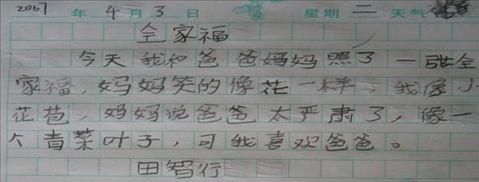 2007年4月3日 星期二 天气
全家福
今天我和爸爸妈妈照了一张全
家福,妈妈笑的像花一样,我像小
花苞,妈妈说爸爸太严肃了,像一
个青菜叶子,可我喜欢爸爸。
田智行